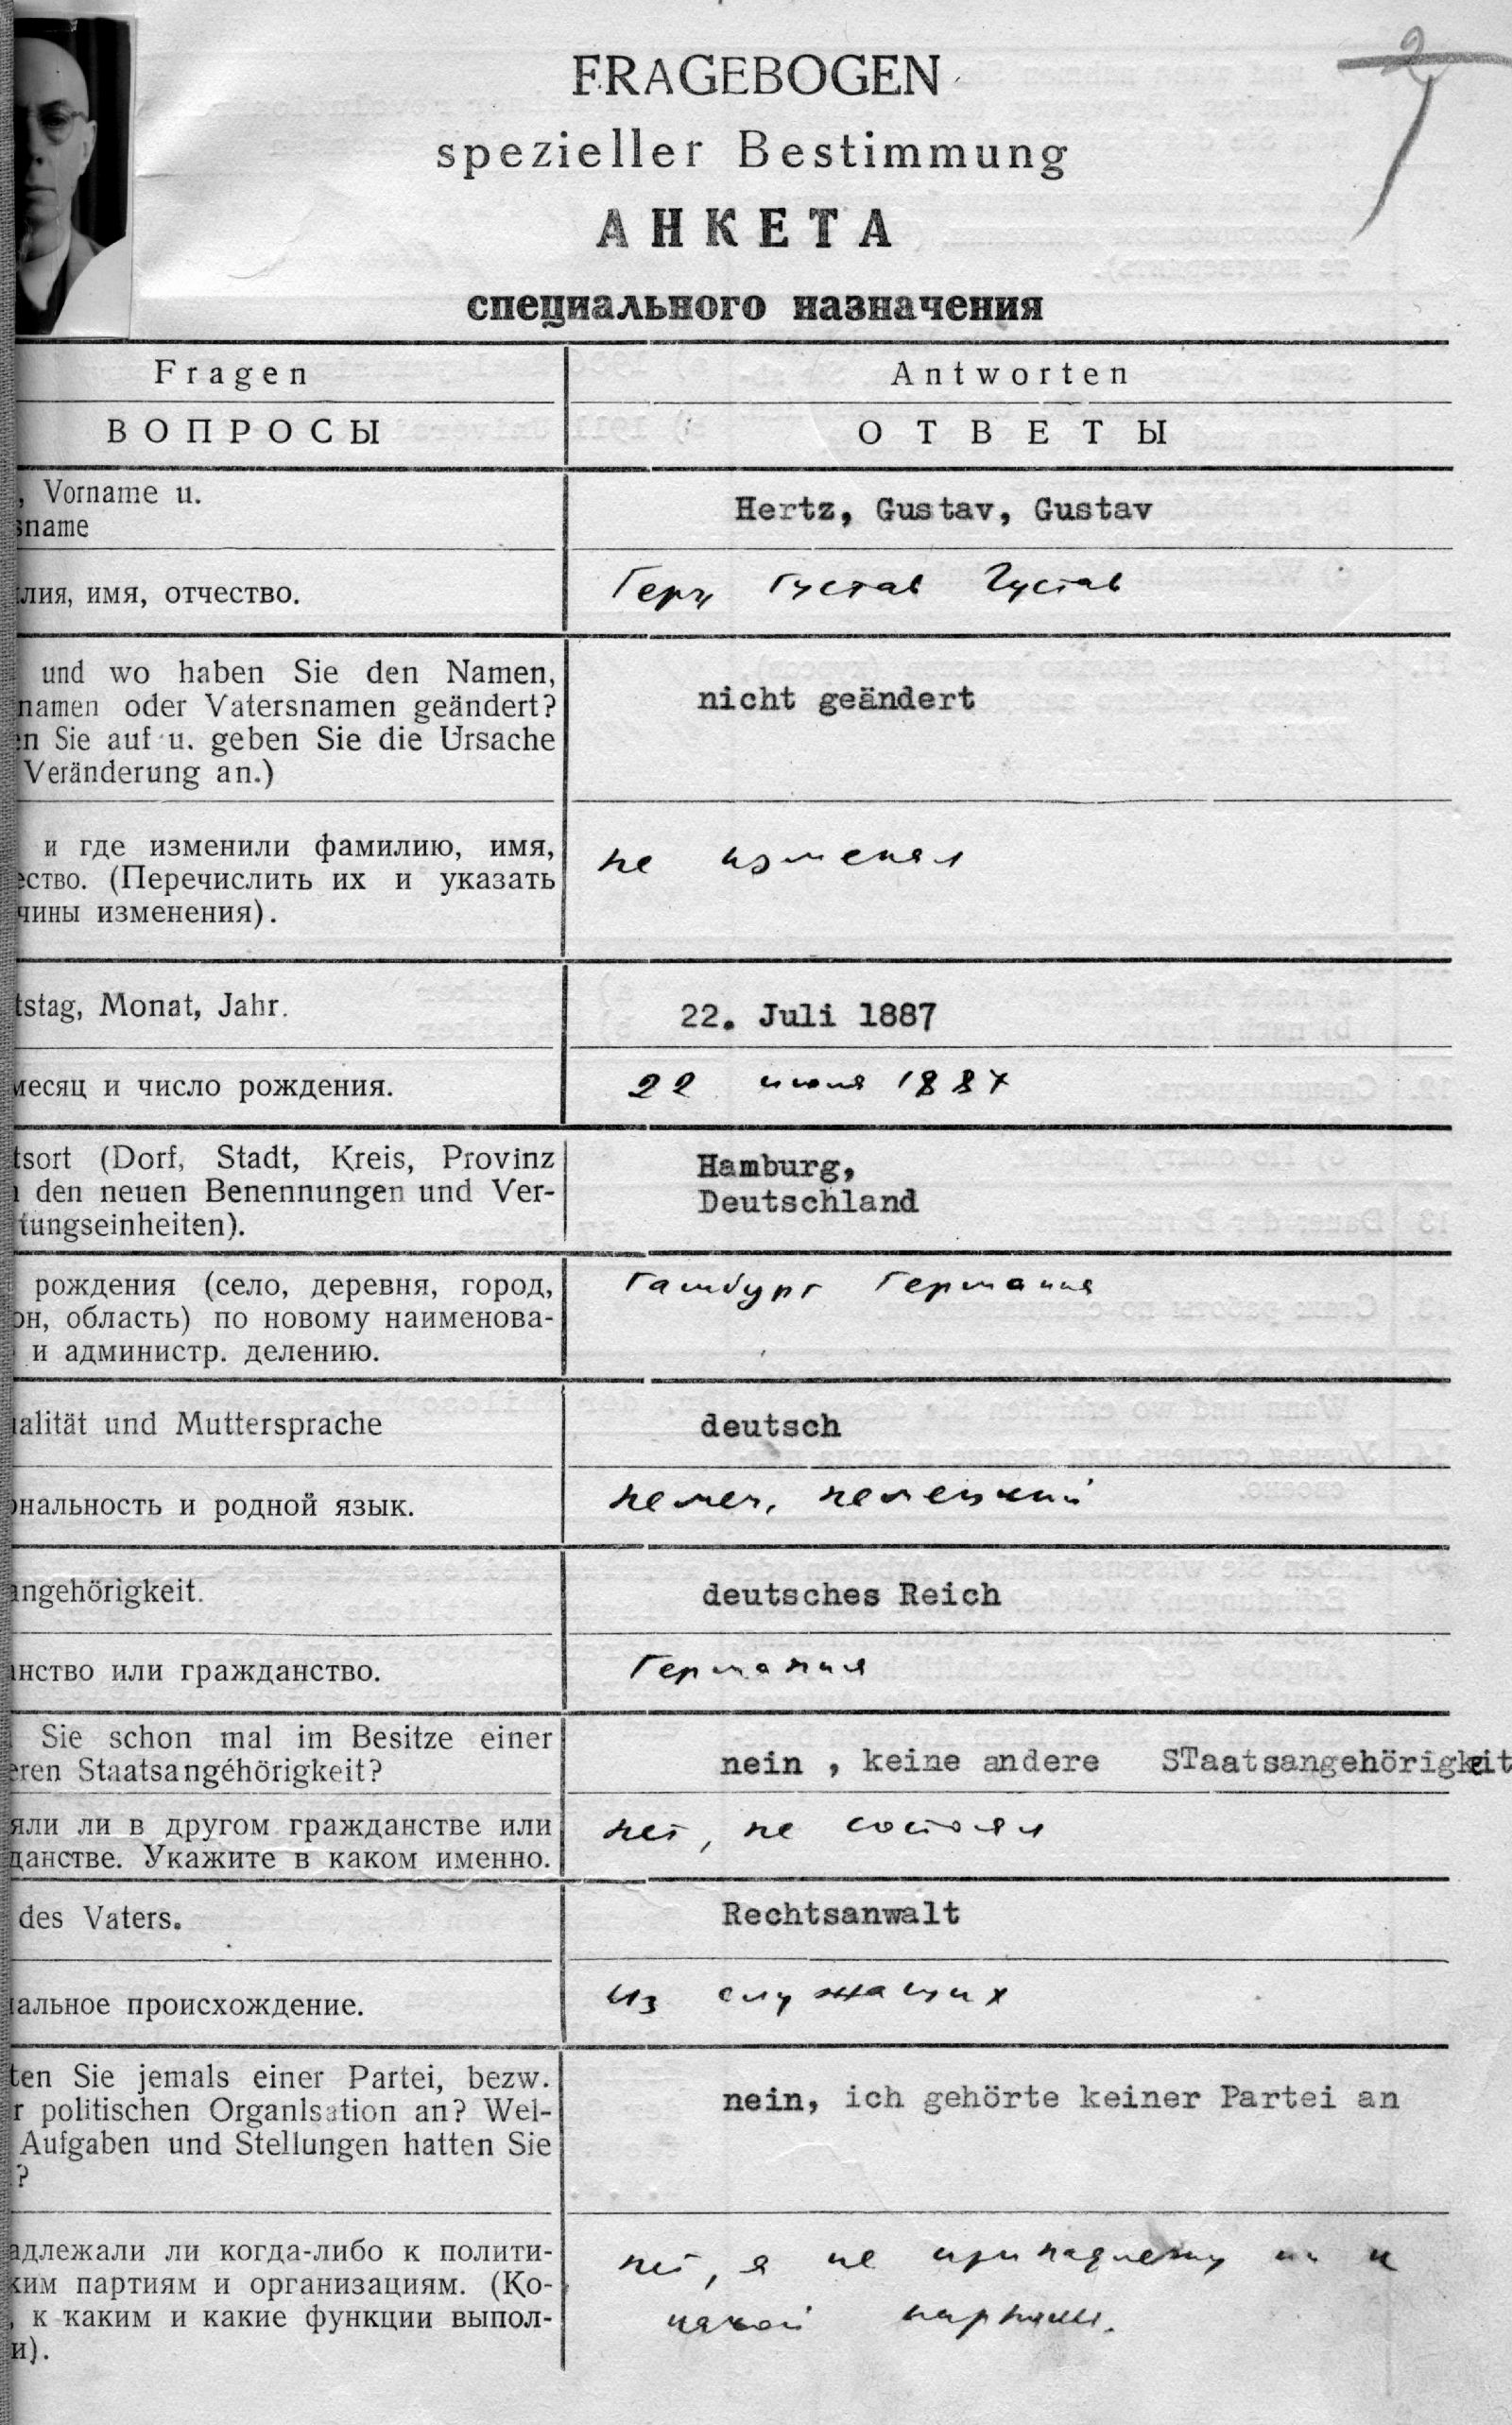 2
FRAGEBOGEN
spezieller Bestimmung
АНКЕТА
специального назначения
Fragen
Antworten
ВОПРОСЫ
ОТВЕТЫ
, Vorname u.
sname
Hertz, Gustav, Gustav
лия, имя, отчество.
Герц Густав Густав
und wo haben Sie den Namen,
namen oder Vatersnamen geändert?
en Sie auf u. geben Sie die Ursache
Veränderung an.)
nicht geändert
и где изменили фамилию, имя,
ество. (Перечислить их и указать
чины изменения).
не изменял
tstag, Monat, Jahr.
22. Juli 1887
месяц и число рождения.
22 июля 1887
tsort (Dorf, Stadt, Kreis, Provinz
den neuen Benennungen und Ver-
tungseinheiten).
Hamburg,
Deutschland
рождения (село, деревня, город,
он, область) по новому наименова-
и администр. делению.
Гамбург Германия
nalität und Muttersprache
deutsch
ональность и родной язык.
немец, немецкий
angehörigkeit.
deutsches Reich
анство или гражданство.
Германия
Sie schon mal im Besitze einer
eren Staatsangéhörigkeit?
nein , keine andere STaatsangehörigkeit
яли ли в другом гражданстве или
данстве. Укажите в каком именно.
нет, не состоял
des Vaters.
Rechtsanwalt
альное происхождение.
из служащих
ten Sie jemals einer Partei, bezw.
r politischen Organlsation an? Wel-
Aufgaben und Stellungen hatten Sie
?
nein, ich gehörte keiner Partei an
адлежали ли когда-либо к полити-
ким партиям и организациям. (Ко-
, к каким и какие функции выпол-
и).
нет, я не принадлежу ни к
какой партии.